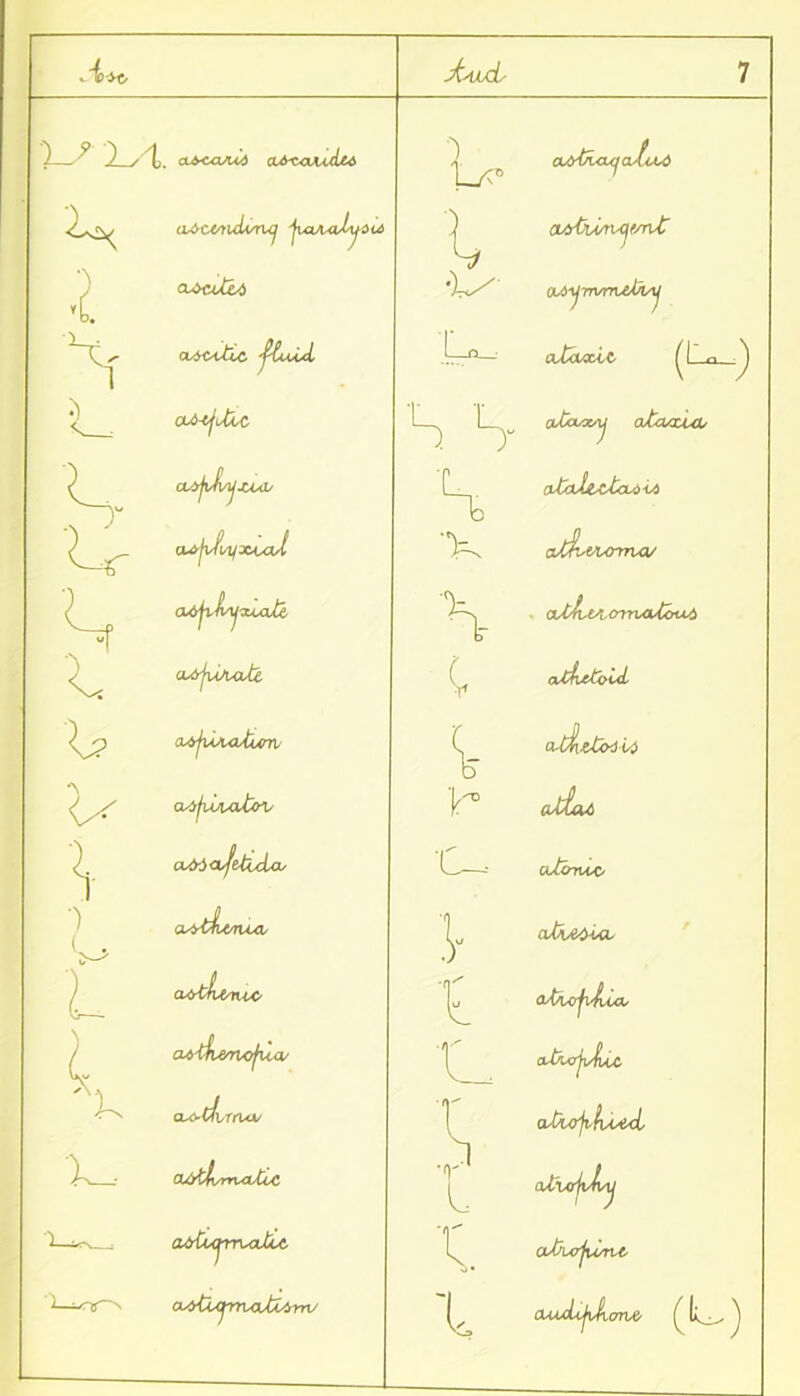 Asc
ascaris ascarides
ascending paralysis
ascites
ascitic fluid
aseptic
asphyxia
asphyxial
asphyxiate
aspirate
aspiration
aspirator
assafetida
asthenia
asthenic
asthenopia
asthma
asthmatic
astigmatic
astigmatism
Aud 7
astragalus
astringent
asymmetry
ataxic
ataxy ataxia
atalectasis
atheroma
atheromatous
athetoid
athetosis
atlas
atonic
atresia
atrophia
atrophic
atrophied
atrophy
atropine
audiphone